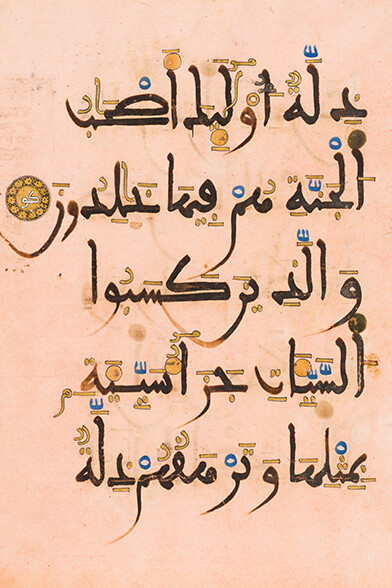 ذِلَّةٌ أُوْلَٰئِكَ أَصْحَٰبُ
الْجَنَّةِ هُمْ فِيهَا خَٰلِدُونَ كو
وَالَّذِينَ كَسَبُوا
السَّيِّئَاتِ جَزَاءُ سَيِّئَةٍ
بِمِثْلِهَا وَتَرْهَقُهُمْ ذِلَّةٌ